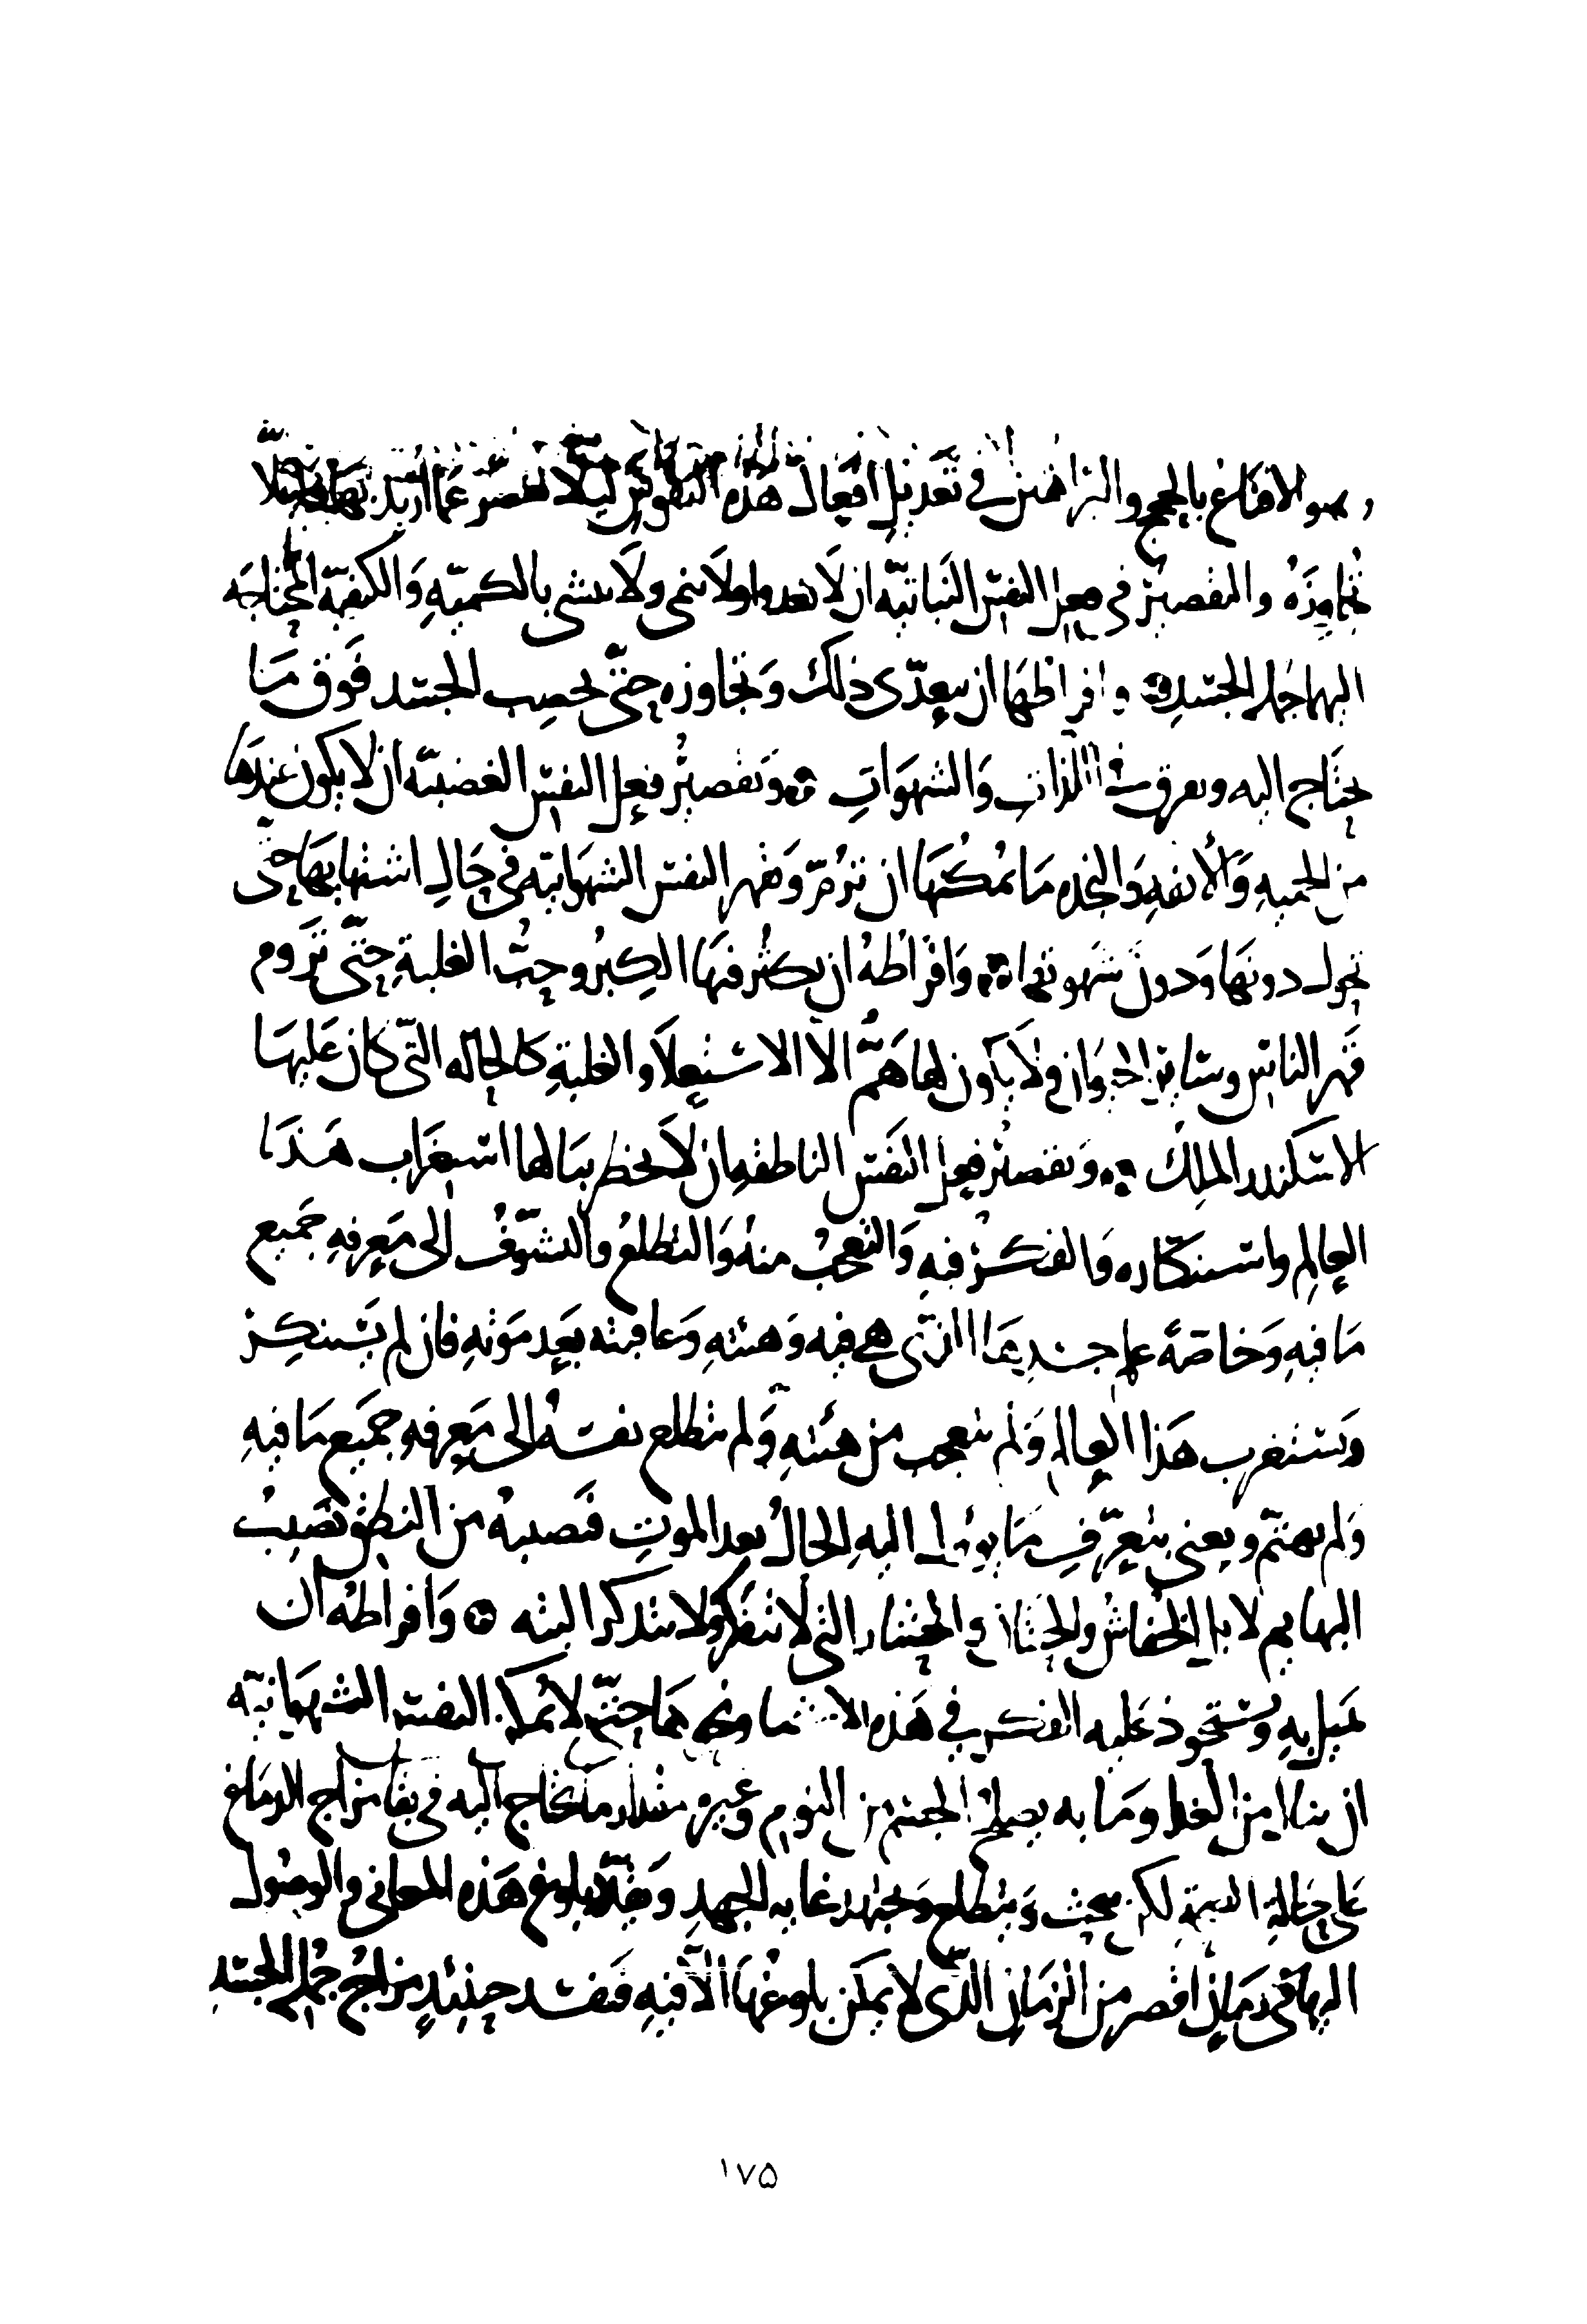 وهو الاقناع بالحجج والبراهين في تعديل افعال هذه النفوس ليلا تقصر عما اريد بها وليلا
تجاوزه والتقصير في فعل النفس النباتية ان لا تغدوا ولا تنمى ولا تنشى بالكمية والكيفية المحتاجه
اليها جملة الجسد وافراطها ان يتعدى ذلك وتجاوزه حتى يخصب الجسد فوق ما
يحتاج اليه ويغرق في اللذات والشهوات وتقصير فعل النفس الغضبيه ان لا يكون عندها
من الحميه والانفه والنجده ما يمكنها ان تزم وتقهر النفس الشهوانيه في حال اشتهايها حتى
تحول دونها ودون شهوتها وافراطه ان يكثر فيها الكبر وحب الغلبة حتى تروم
قهر الناس وساير الحيوان ولا يكون لها هم الا الاستعلا والغلبة كالحاله التي كان عليها
الاسكندر الملك وتقصير فعل النفس الناطقه ان لا يخطر ببالها استغراب هذا
العالم واستنكاره والفكر فيه والتعجب منه والتطلع والتشوف الى معرفه جميع
ما فيه وخاصة علم جسدها الذي هي فيه وهيئته وعاقبته بعد موته فان لم يستنكر
ويستغرب هذا العالم ولم يتعجب من هيئته ولم يتطلع نفسه الى معرفه جميع ما فيه
ولم يهتم ويعنى بتعرف ما يؤل اليه الحال بعد الموت فنصيبه من النطق نصيب
البهايم لا بل الخفاش والحيتان والخشار التي لا تتفكر ولا تتذكر البته وافراطه ان
يميل به ويستحوذ عليه الفكر في هذه الاشيا ونحوها حتى لا يمكن النفس الشهوانيه
ان ينال من الغذا وما به يصلح الجسم من النوم وغيره مقدار ما يحتاج اليه في بقا مزاج الدماغ
على حالة الصحة لكن يبحث ويتطلع ويجتهد غايه الجهد ويقدر بلوغ هذه المعاني والوصول
اليها في زمان اقصر من الزمان الذي لا يمكن بلوغها الا فيه فيفسد حينئذ مزاج جملة الجسد
١٧۵